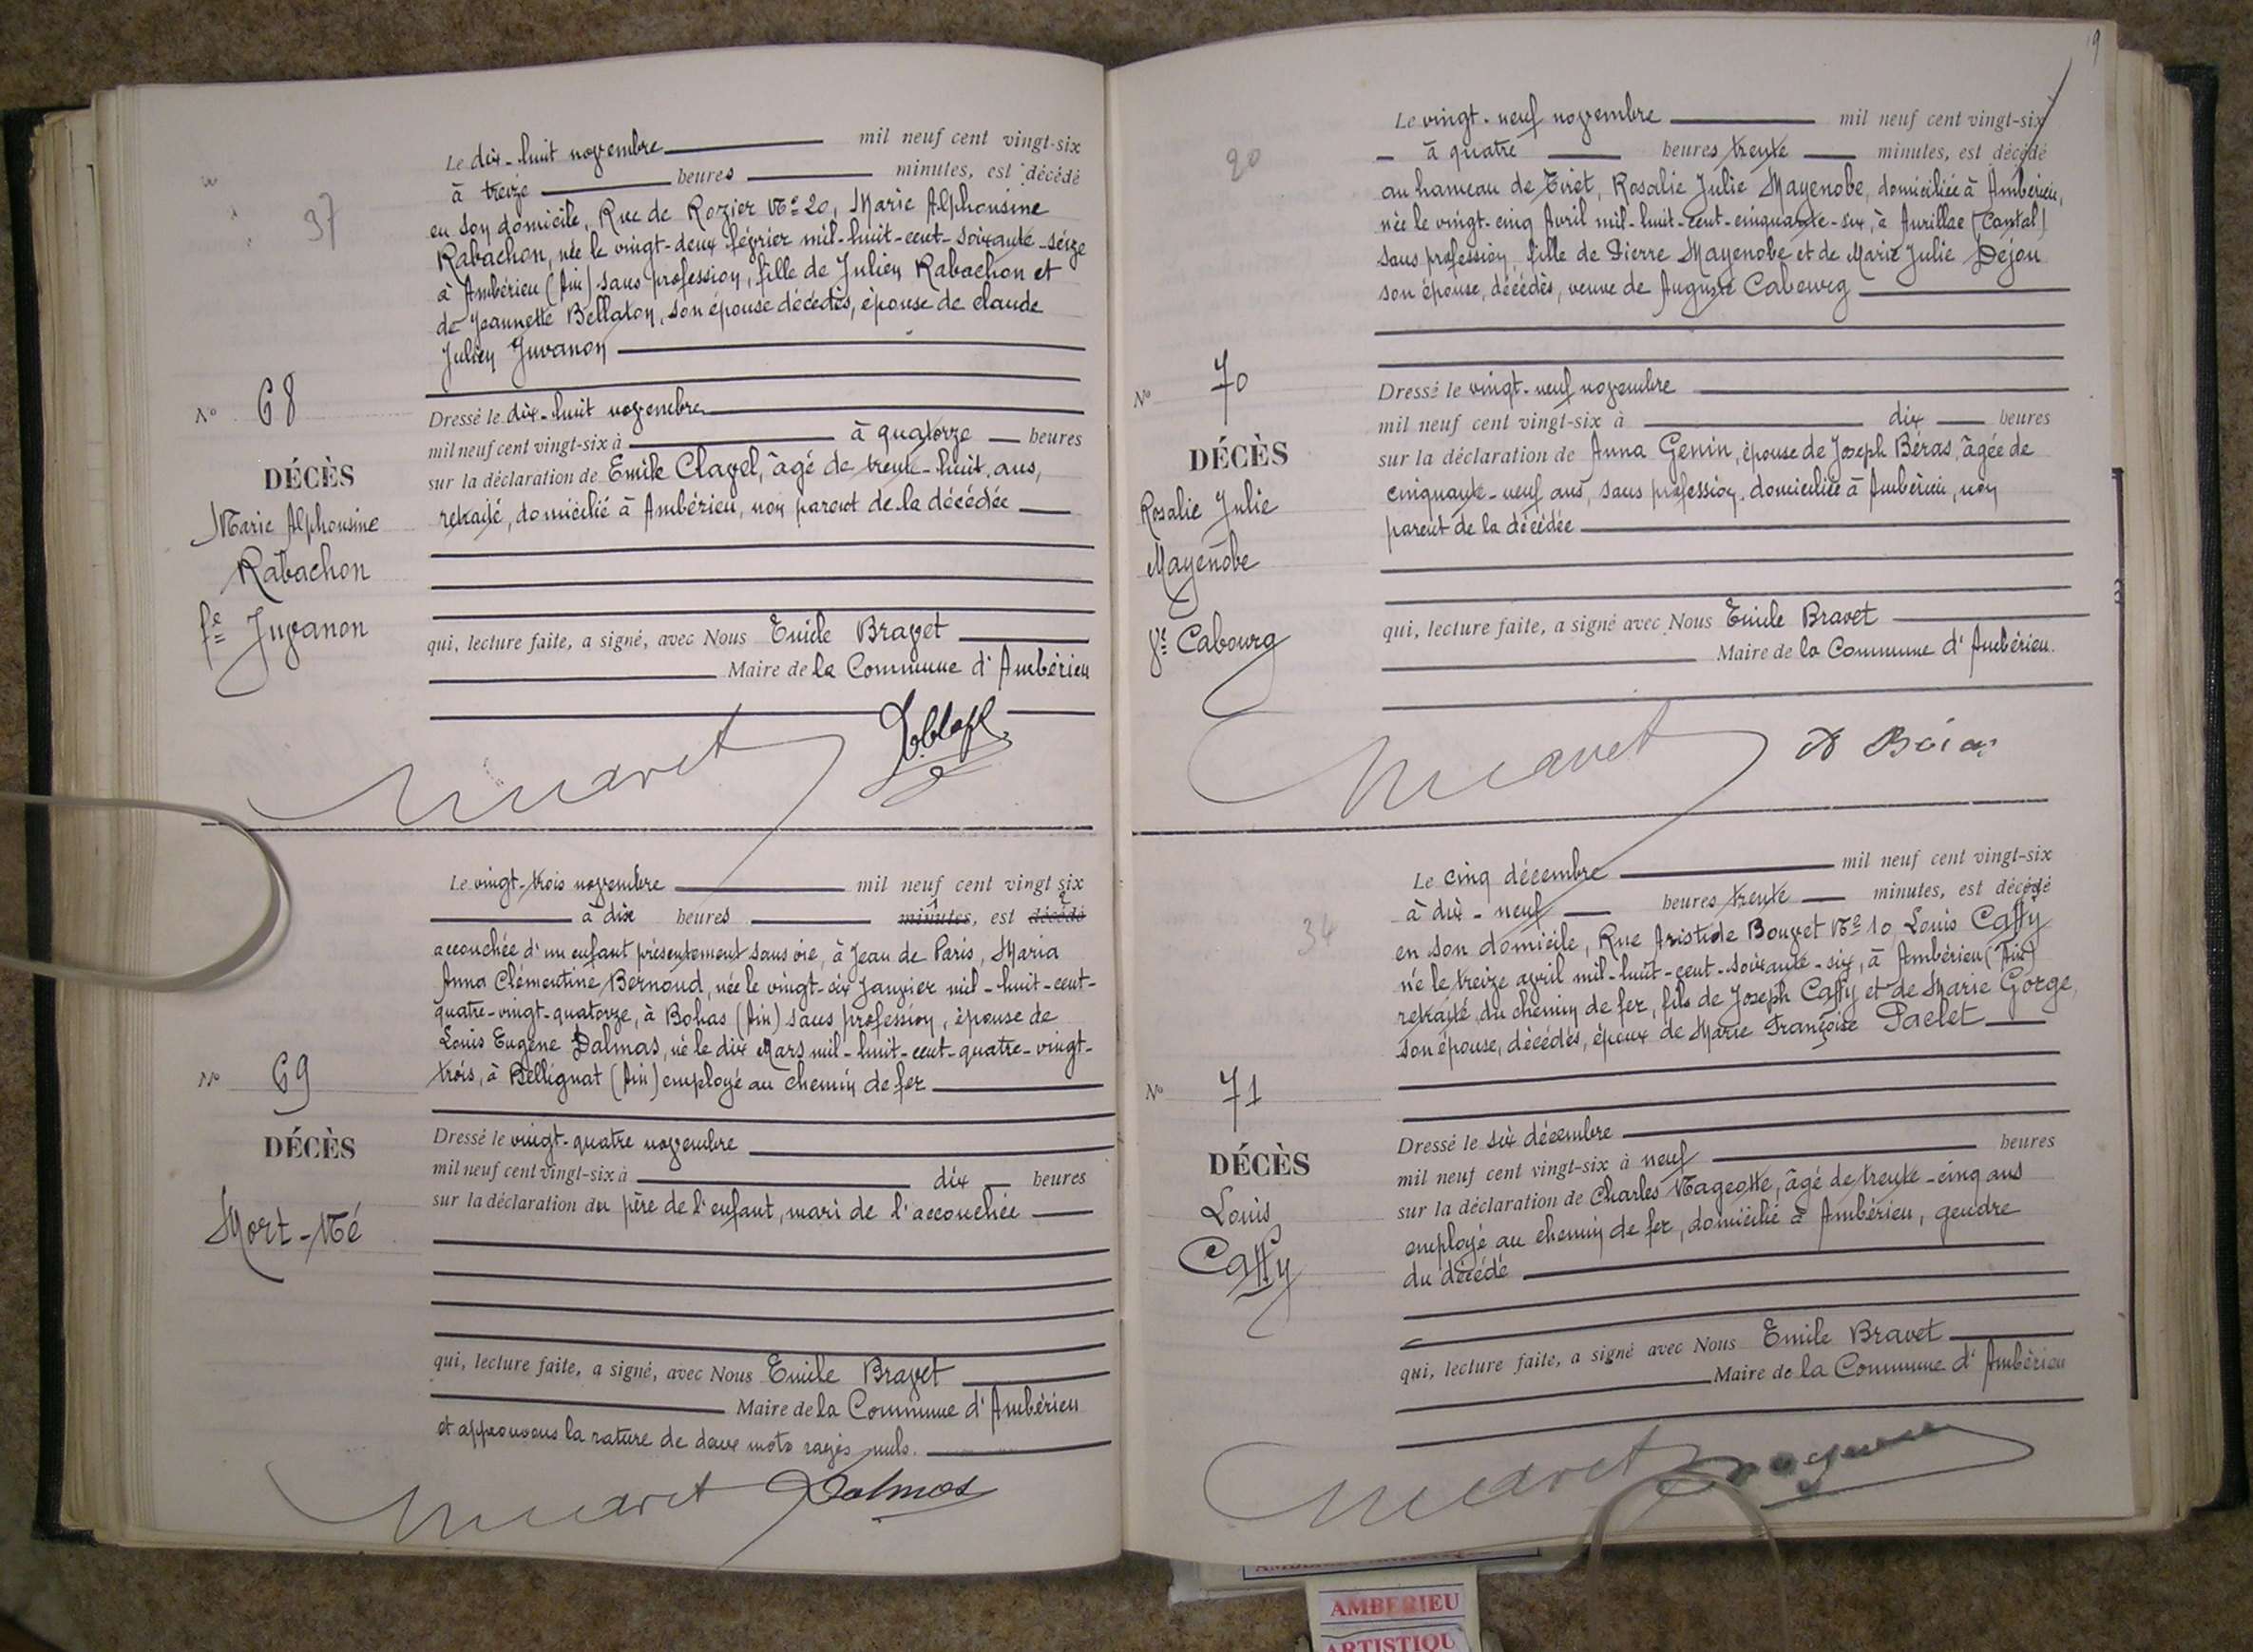 37
Le dix-huit novembre mil neuf cent vingt-six
à treize heures minutes, est décédé
en son domicile, Rue de Rozier No 20, Marie Alphonsine
Rabachon, née le vingt-deux février mil-huit-cent-soixante-seize
à Ambérieu (Ain) sans profession, fille de Julien Rabachon et
de Jeannette Bellaton, son épouse décédés, épouse de claude
Julien Juvanon
No 68
DÉCÈS
Marie Alphonsine
Rabachon
fe Juvanon
Dressé le dix-huit novembre
mil neuf cent vingt-six à à quatorze heures
sur la déclaration de Emile Clavel, âgé de trente-huit ans,
retraité, domicilié à Ambérieu, non parent de la décédée
qui, lecture faite, a signé, avec Nous Emile Bravet
Maire de la Commune d'Ambérieu
Le vingt-trois novembre mil neuf cent vingt six
à dix heures minutes, est décédé
accouchée d'un enfant présentement sans vie, à Jean de Paris, Maria
Anna Clémentine Bernoud, née le vingt-six Janvier mil-huit-cent-
quatre-vingt-quatorze, à Bohas (Ain) sans profession, épouse de
Louis Eugène Dalmas, né le dix Mars mil-huit-cent-quatre-vingt-
trois, à Bellignat (Ain) employé au chemin de fer
No 69
DÉCÈS
Mort-Né
Dressé le vingt-quatre novembre
mil neuf cent vingt-six à dix heures
sur la déclaration du père de l'enfant, mari de l'accouchée
qui, lecture faite, a signé, avec Nous Emile Bravet
Maire de la Commune d'Ambérieu
et approuvons la rature de deux mots rayés nuls.
Dalmas
20
Le vingt-neuf novembre mil neuf cent vingt-six
à quatre heures trente minutes, est décédé
au hameau de Tiret, Rosalie Julie Mayenobe, domiciliée à Ambérieu,
née le vingt-cinq Avril mil-huit-cent-cinquante-six, à Aurillac (Cantal)
sans profession fille de Pierre Mayenobe et de Marie Julie Dejou
son épouse, décédés, veuve de Auguste Cabourg
No 70
DÉCÈS
Rosalie Julie
Mayenobe
Ve Cabourg
Dressé le vingt-neuf novembre
mil neuf cent vingt-six à dix heures
sur la déclaration de Anna Genin, épouse de Joseph Béras, âgée de
cinquante-neuf ans, sans profession, domiciliée à Ambérieu, non
parent de la décédée
qui, lecture faite, a signé avec Nous Emile Bravet
Maire de la Commune d'Ambérieu.
34
Le cinq décembre mil neuf cent vingt-six
à dix-neuf heures trente minutes, est décédé
en son domicile, Rue Aristide Bouvet No 10 Louis Caffy
né le treize avril mil-huit-cent-soixante-six, à Ambérieu (Ain)
retraité du chemin de fer, fils de Joseph Caffy et de Marie Gorge,
son épouse, décédés, époux de Marie Françoise Paclet
No 71
DÉCÈS
Louis
Caffy
Dressé le six décembre
mil neuf cent vingt-six à neuf heures
sur la déclaration de Charles Nageotte, âgé de trente-cinq ans
employé au chemin de fer, domicilié à Ambérieu, gendre
du décédé
qui, lecture faite, a signé avec Nous Emile Bravet
Maire de la Commune d'Ambérieu
AMBERIEU
ARTISTIQU